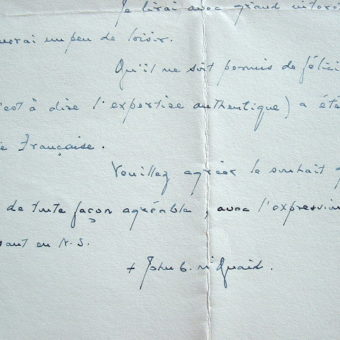 Je lirai avec grand intérê
aurai un peu de loisir.
Qu'il me soit permis de félici
c'est à dire l'expertise authentique) a été
e Française.
Veuillez agréer le souhait q
de toute façon agréable, avec l'expression
ant en N.S.
+ John C. McQuaid.